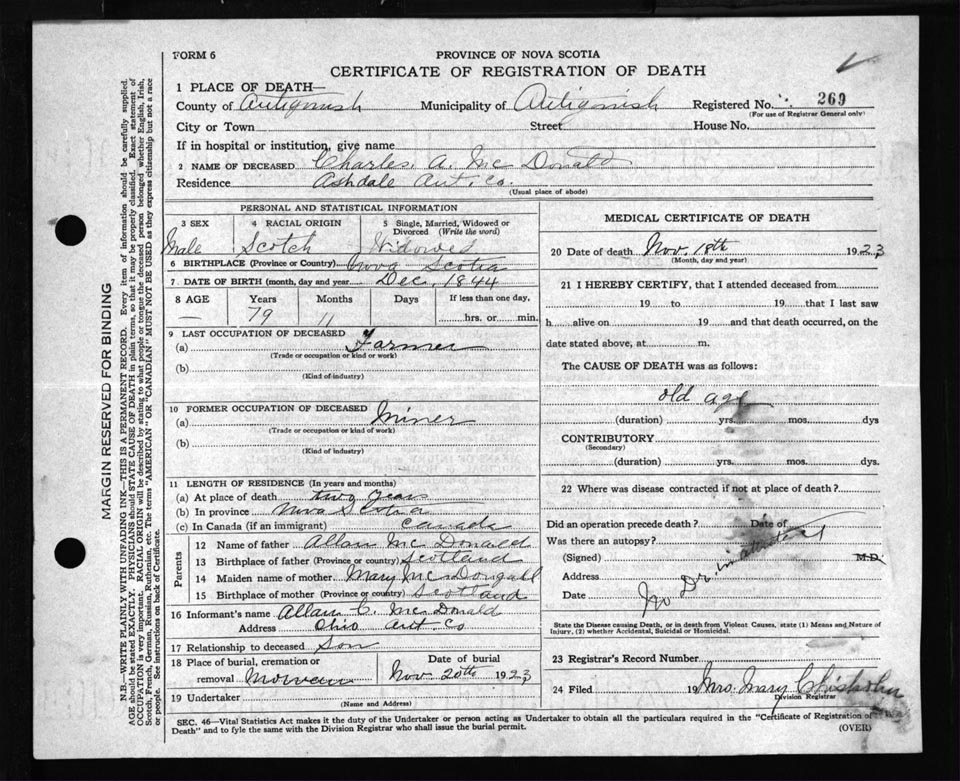 FORM 6
PROVINCE OF NOVA SCOTIA
CERTIFICATE OF REGISTRATION OF DEATH
1 PLACE OF DEATH—
County of Antigonish Municipality of Antigonish Registered No. 269
(For use of Registrar General only)
City or Town Street House No.
If in hospital or institution, give name
2 NAME OF DECEASED Charles. A. Mc Donald
Residence Ashdale Ant. Co.
(Usual place of abode)
PERSONAL AND STATISTICAL INFORMATION
3 SEX 4 RACIAL ORIGIN 5 Single, Married, Widowed or Divorced (Write the word)
Male Scotch Widowed
6 BIRTHPLACE (Province or Country) Nova Scotia
7 DATE OF BIRTH (month, day and year) Dec, 1844
8 AGE Years Months Days If less than one day,
— 79 11 hrs. or min.
9 LAST OCCUPATION OF DECEASED
(a) Farmer
(Trade or occupation or kind or work)
(b)
(Kind of industry)
10 FORMER OCCUPATION OF DECEASED
(a) Miner
(Trade or occupation or kind of work)
(b)
(Kind of industry)
11 LENGTH OF RESIDENCE (In years and months)
(a) At place of death two years
(b) In province Nova Scotia
(c) In Canada (if an immigrant) Canada
Parents
12 Name of father Allan Mc Donald
13 Birthplace of father (Province or country) Scotland
14 Maiden name of mother Mary McDougall
15 Birthplace of mother (Province or country) Scotland
16 Informant's name Allan C. McDonald
Address Ohio Ant. Co
17 Relationship to deceased Son
18 Place of burial, cremation or removal Date of burial
Nov. 20th 1923
19 Undertaker
(Name and Address)
MEDICAL CERTIFICATE OF DEATH
20 Date of death Nov. 18th 1923
(Month, day and year)
21 I HEREBY CERTIFY, that I attended deceased from
19 to 19 that I last saw
h alive on 19 and that death occurred, on the
date stated above, at m.
The CAUSE OF DEATH was as follows:
old age
(duration) yrs. mos. dys
CONTRIBUTORY
(Secondary)
(duration) yrs. mos. dys.
22 Where was disease contracted if not at place of death?
Did an operation precede death? Date of
Was there an autopsy?
(Signed) M.D.
Address
Date
No Dr. in attendance
State the Disease causing Death, or in death from Violent Causes, state (1) Means and Nature of
Injury, (2) whether Accidental, Suicidal or Homicidal.
23 Registrar's Record Number
24 Filed 19 Mrs. Mary Chisholm
Division Registrar
SEC. 46—Vital Statistics Act makes it the duty of the Undertaker or person acting as Undertaker to obtain all the particulars required in the "Certificate of Registration of
Death" and to fyle the same with the Division Registrar who shall issue the burial permit.
(OVER)
MARGIN RESERVED FOR BINDING
N.B.—WRITE PLAINLY WITH UNFADING INK—THIS IS A PERMANENT RECORD. Every item of information should be carefully supplied.
AGE should be stated EXACTLY. PHYSICIANS should STATE CAUSE OF DEATH in plain terms, so that it may be properly classified. Exact statement of
OCCUPATION is very important. RACIAL ORIGIN will be described by stating to what people or tongue the deceased person belonged whether English, Irish,
Scotch, French, German, Russian, Ruthenian, etc. The terms "AMERICAN" OR "CANADIAN" MUST NOT BE USED as they express citizenship but not a race
or people. See instructions on back of Certificate.